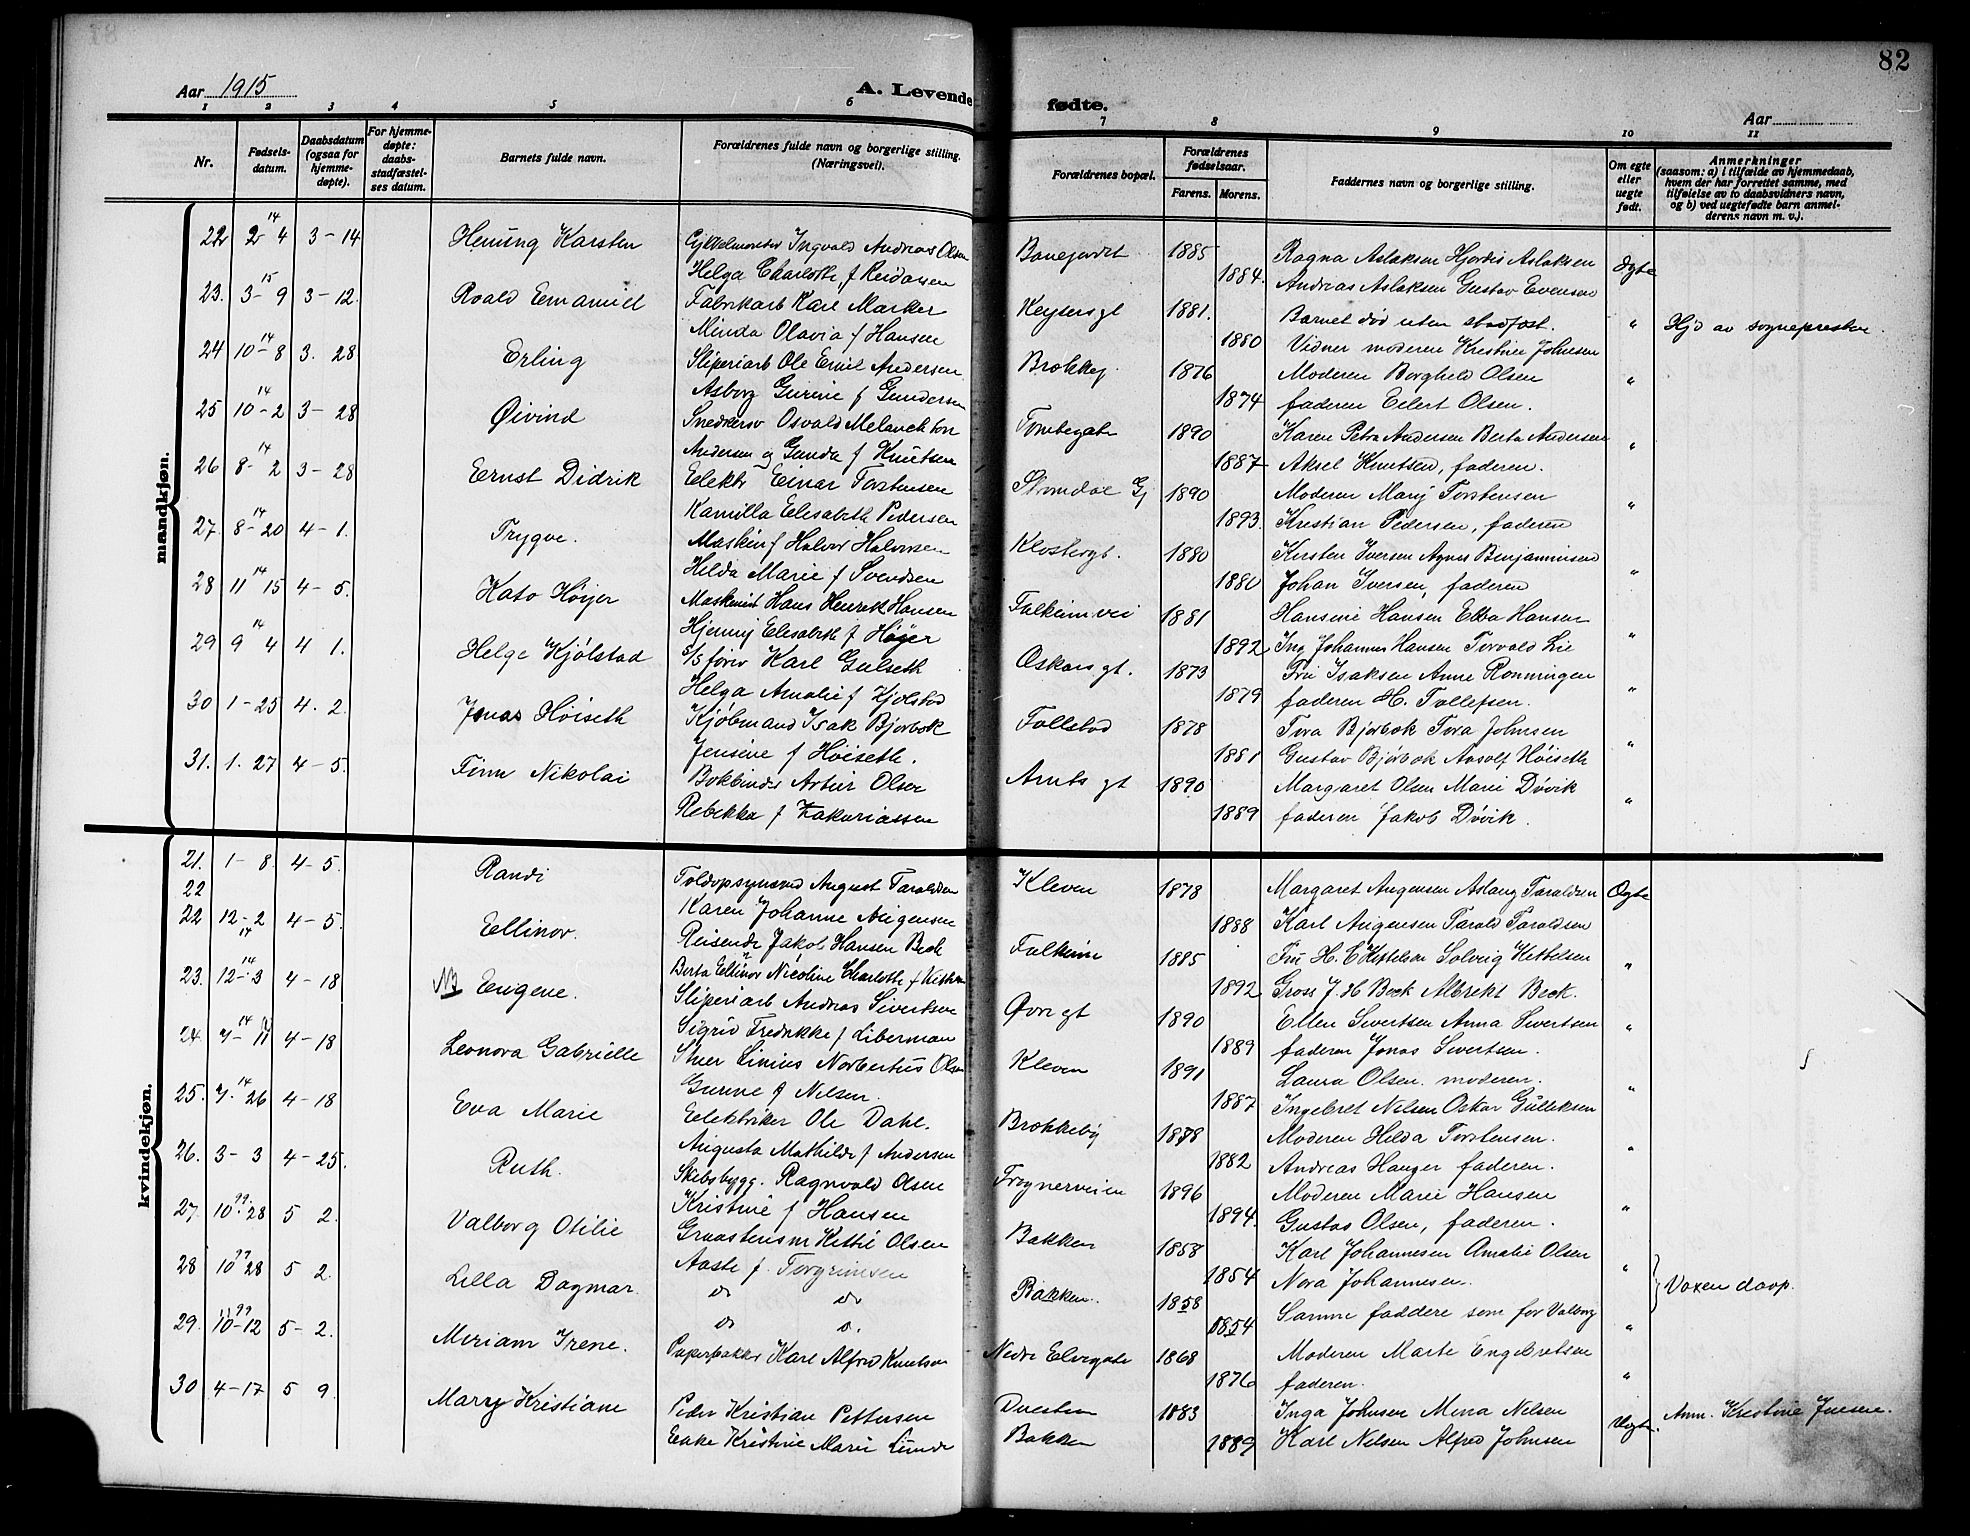 82
Aar 1915
A. Levende fødte.
Aar
1 2 3 4 5 6 7 8 9 10 11
Nr.
Fødsels-
datum.
Daabsdatum
(ogsaa for
hjemme-
døpte).
For hjemme-
døpte:
daabs-
stadfæstel-
ses datum.
Barnets fulde navn.
Forældrenes fulde navn og borgerlige stilling.
(Næringsvei).
Forældrenes bopæl.
Forældrenes
fødselsaar.
Farens. Morens.
Faddernes navn og borgerlige stilling.
Om egte
eller
uegte
født.
Anmerkninger
(saasom: a) i tilfælde av hjemmedaab,
hvem der har forrettet samme, med
tilføielse av to daabsvidners navn,
og b) ved uegtefødte barn anmel-
derens navn m. v.).
mandkjøn.
22 2 14 4 3-14 Henning Karsten Ingvald Andreas Olsen 1885 Ragna Aslaksen Hjordis Aslaksen Ægte
Helga Charlotte f 1884 Andreas Aslaksen Gustav Evensen
23. 3- 15 9 3-12. Roald Emanuel Fabrikarb Karl Marker Keysersgt 1881. Barnet død uten stadfæst. " Hjd av sognepresten.
Minda Olavia f Hansen 1880 Vidner moderen Kristine Johnsen
24 10- 14 8 3. 28 Erling Sliperiarb Ole Emil Andersen 1876 Moderen Borghild Olsen "
Asborg Gurine f Gundersen 1874 faderen Eilert Olsen.
25 10- 14 2 3-28 Øivind Snedkersv Osvald Melanckton 1890 Karen Petra Andersen Berta Andersen "
Andersen og Gunda f Knutsen 1887 Aksel Knutsen, faderen.
26 8- 14 2 3-28 Ernst Didrik Elektr Einar Torstensen 1890 Moderen Marij Torstensen "
Kamilla Elisabeth Pedersen 1893. Kristian Pedersen, faderen
27 8- 14 20 4-1. Trygve. Maskinf Halvor Halvorsen Klostergt. 1880 Kirsten Iversen Agnes Benjaminsen "
Hilda Marie f Svendsen 1880 Johan Iversen, faderen
28 11 14 15 4-5. Kato Høyer Maskinist Hans Henrik Hansen Falkumvei 1881 Hansine Hansen Ebba Hansen "
Hjenny Elisabeth f Høyer 1892 Ing Johannes Hansen Torvald Lie
29 9 14 4 4 1. Helge Kjølstad Karl Gulseth Oskarsgt. 1873 Fru Isaksen Anne Rønningen "
Helga Amalie f Kjølstad 1879 faderen H. Tollefsen.
30 1-25 4. 2. Jonas Høiseth Kjøbmand Isak Bjørbæk Follestad 1878 Tora Bjørbæk Tora Johnsen "
Jensine f Høiseth. 1881 Gustav Bjørbæk Aasolf Høiseth
31. 1. 27 4-5. Finn Nikolai Bokbinder Artur Olsen Amts gt 1890 Margaret Olsen Marie Døvik "
Rebekka f Zakariassen 1889 faderen Jakob Døvik.
kvindekjøn.
21. 1-8. 4-5. Randi August Taraldsen Kleven 1878 Margaret Augensen Aslaug Taraldsen Ægte
22
Karen Johanne Augensen 1888 Karl Augensen Tarald Taraldsen
22 12-2 14 4-5. Ellinor. Reisende Jakob Hansen Beck Falkum 1885 Fru H. C Kittelsen Solveig Kittelsen "
Berta Ellinor Nicoline Charlotte f 1892 Gross J. H Beck Albrekt Beck.
23. 12- 14 3 4-18 NB Eugene. Sliperiarb Andreas Sivertsen Øvre gt 1890 Ellen Sivertsen Anna Sivertsen "
Sigrid Fredrikke f Liberman 1889 faderen Jonas Sivertsen.
24. 7- 14 11 4-18 Leonora Gabrielle Linius Norbertus Olsen Kleven 1891 Laura Olsen. moderen. "
Gurine f Nilsen. 1887 Ingebret Nilsen Oskar Gulleksen
25. 7. 14 26 4-18 Eva Marie Elektriker Ole Dahl. Brekkeby 1878 Moderen Hilda Torstensen. "
Augusta Mathilde f Andersen 1882 Andreas Hauger faderen.
26. 3-3 4-25. Ruth. Skibsbygg. Ragnvald Olsen Frognerveien 1896 Moderen Marie Hansen "
Kristine f Hansen 1894. Gustav Olsen, faderen.
27. 10 99 28 5 2. Valborg Otilie Kittil Olsen Bakken 1858 Karl Johannesen Amalie Olsen "
Aaste f. Torgrimsen 1854 Nora Johannesen. } Voxen daap.
28 10 97 28 5 2. Lilla Dagmar. do do Bakken. 1858 Samme faddere som for Valborg
do do. 1854 "
29. 10-12 99 5-2. Miriam Irene. Karl Alfred Knutsen Nedre Elvegate 1868 Moderen Marte Engebretsen
1876 faderen. "
30 4-17 5 9. Marry Kristiane Peder Kristian Pettersen 1883 Inga Johnsen Mina Nilsen Uegte. Anm. Kristine
Enke Kristine Marie Bakken 1889 Karl Nilsen Alfred Johnsen